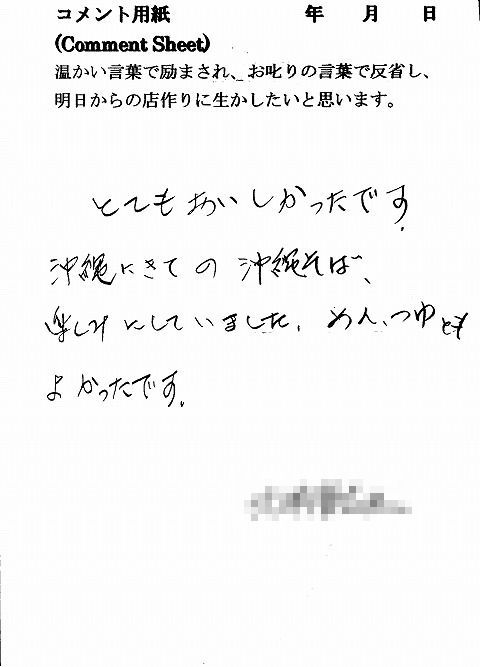 コメント用紙 年 月 日
(Comment Sheet)
温かい言葉で励まされ、お叱りの言葉で反省し、
明日からの店作りに生かしたいと思います。
とてもおいしかったです。
沖縄にきての沖縄そば、
楽しみにしていました。めん、つゆとも
よかったです。